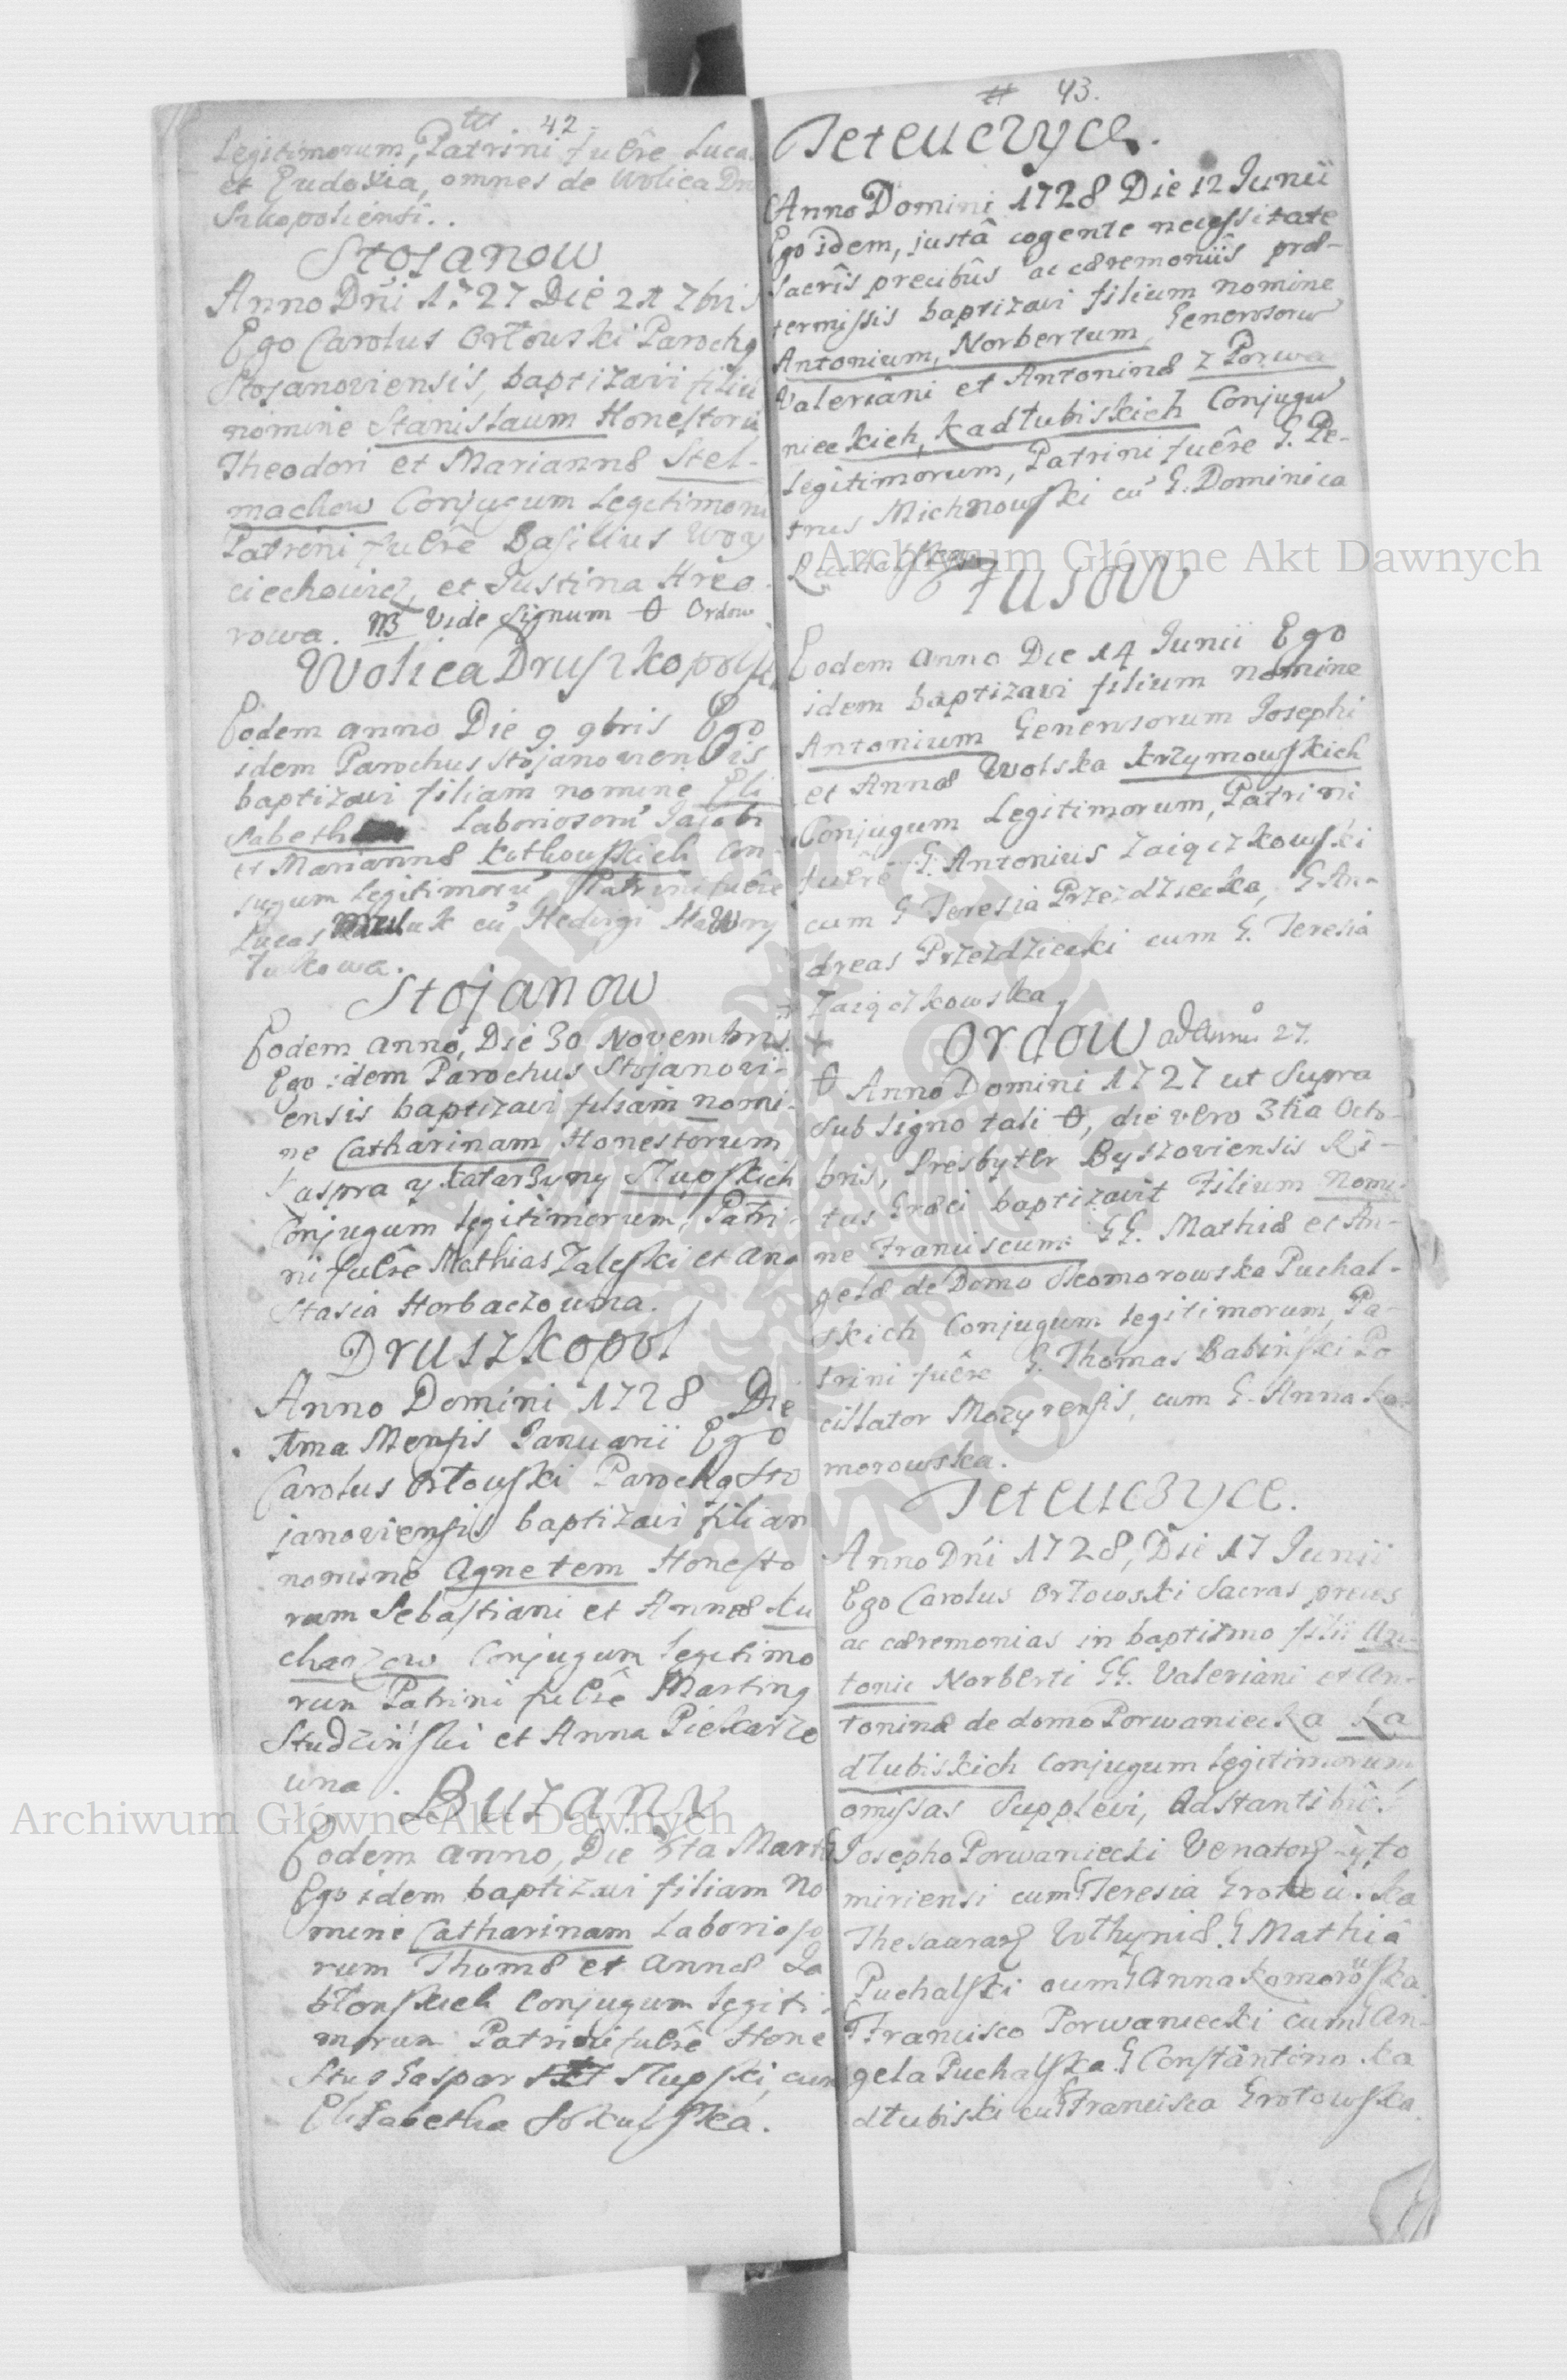 42
Legitimorum, Patrini fuêre Luca
et Eudoxia, omnes de Wolica
Stojanow
Anno Dñi 1727 Die 21 7bris
Ego Carolus Orłowski Parochg
Stojanoviensis, baptizavi filiu
nomine Stanisłaum Honestoru
Theodori et Mariannæ Stel-
machow Conjugum Legitimoru
Patrini fuêre Basilius Woy
ciechowicz, et Justina Hreo
rowa. NB Vide Signum Ɵ Ordow
Wolica Druszkopols
Eodem anno Die 9 9bris Ego
idem Parochus Stojanoviensis
baptizavi filiam nomine Eli
sabeth Laboriosorũ Jacobi
et Mariannæ Kothowskich Con
jugum Legitimorũ Patrini fuêre
Lucas cũ Hedvigi
Stojanow
Eodem anno, Die 30 Novembris
Ego idem Parochus Stojanovi-
ensis baptizavi filiam nomi-
ne Catharinam Honestorum
Kaspra y Katarzyny Słupskich
Conjugum Legitimorum, Patri-
ni fuêre Mathias Zaleski et Ana
stasia Horbaczowna.
Druszkopol
Anno Domini 1728 Die
1ma Mensis Januarii Ego
Carolus Orłowski Parochg Sto
janoviensis baptizavi filiam
nomine Agnetem Honesto
rum Sebastiani et Annæ Ku
charzow Conjugum Legitimo
rum Patrini fuêre Marting
Studziński et Anna Piekarzo
wna.
Buzany
Eodem anno, Die 3tia Martii
Ego idem baptizavi filiam No
mine Catharinam Laborioso
rum Thomæ et Annæ Ja
błonskich Conjugum Legiti-
morum Patrini fuêre Hone
stus Gaspar Słupski, cum
Elisabetha Sokulska.
43.
Teteuczyce.
Anno Domini 1728 Die 12 Junii
Ego idem, justâ cogente necessitate
sacrîs precibûs ac cæremoniîs præ-
termissis baptizavi filium nomine
Antonium, Norbertum, Generosorũ
Valeriani et Antoninæ z Porwa
nieckich, Kadłubiskich Conjugũ
Legitimorum, Patrini fuêre G. Pe-
trus Michnowski cũ G. Dominica
Tusow
Eodem anno Die 14 Junii Ego
idem baptizavi filium nomine
Antonium Generosorum Josephi
et Annæ Wolska Krzymowskich
Conjugum Legitimorum, Patrini
fuêre G. Antonius Zaiączkowski
cum G Teresia Przezdziecka, G An-
dreas Przezdziecki cum G. Teresia
Zaiączkowska.
Ordow ad Annũ 27.
Ɵ Anno Domini 1727 ut Supra
sub signo tali Ɵ, die vero 3tia Octo-
bris, Presbyter Byszoviensis Ri-
tus Græci baptizavit Filium Nomi-
ne Franciscum GG. Mathiæ et An-
gelæ de Domo Komorowska Puchal-
skich Conjugum Legitimorum, Pa-
trini fuêre G. Thomas Babinski Po
cillator Mozyrensis, cum G. Anna Ko-
morowska.
Teteuczyce.
Anno Dñi 1728, Die 17 Junii
Ego Carolus Orłowski Sacras preces
ac cæremonias in baptismo filii An-
tonii Norberti GG. Valeriani et An-
toninæ de domo Porwaniecka Ka
dłubiskich Conjugum Legitimorum
omissas Supplevi, Adstantibũ.
Josepho Porwaniecki Venatore Żyto
miriensi cum G Teresia Grotowska
Thesauraꝝ Wołhyniæ. G Mathiâ
Puchalski cum G Anna Komorowska
G Francisco Porwaniecki cum G An-
gela Puchalska G Constantino Ka
dłubiski cũ G Francisca Grotowska.
Archiwum Główne Akt Dawnych
Archiwum Główne Akt Dawnych